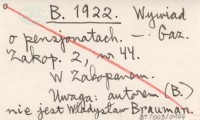 B. 1922. Wywiad
o pensjonatach. — Gaz.
Zakop. 2, nr 44.
W Zakopanem.
Uwaga: autorem (B.)
nie jest Władysław Brauman.